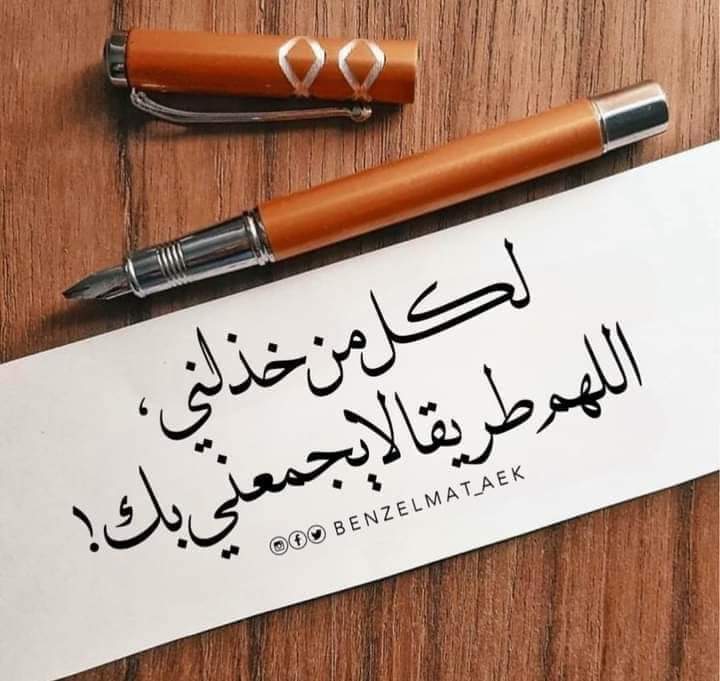 لكل من خذلني،
اللهم طريقا لا يجمعني بك!
BENZELMAT_AEK